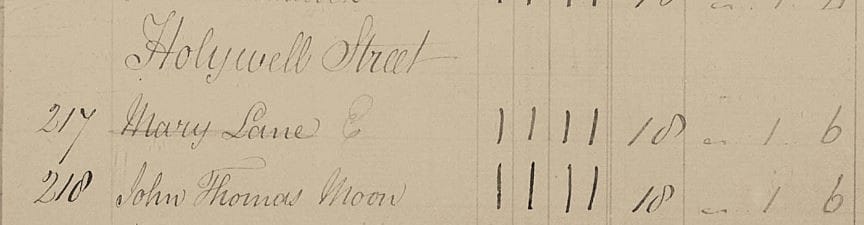 Holywell Street
217 Mary Lane E 1 1 1 1 18 „ 1 . 6
218 John Thomas Moon 1 1 1 1 18 „ 1 6